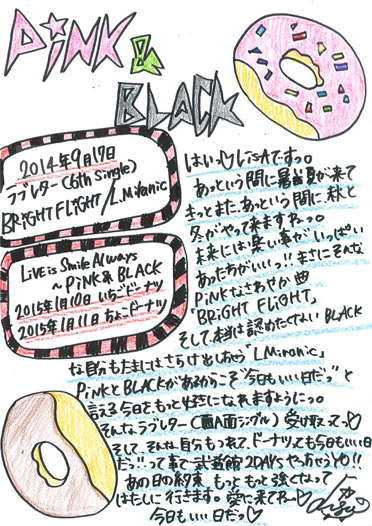 PiNK &
BLACK
2014年9月17日
ラブレター(6th Single)
BRiGHT FLiGHT/L.Miranic
LiVE is Smile Always
~PiNK & BLACK
2015年1月10日 いちごドーナツ
2015年1月11日 ちょこドーナツ
はい♡LiSAですっ。
あっという間に暑い夏が来て
きっとまたあっという間に秋と
冬がやって来ますねっ。
未来には楽しい事がいっぱい
あった方がいいっ!!まさにそんな
PiNKなさわやか曲
BRiGHT FLiGHT」
そして、本当は認めたくない BLACK
な自分もたまにはさらけ出しちゃう「L.Miranic」
PiNKとBLACKがあるからこそ"今日もいい日だっ"と
言える今日を、もっと好きになれますようにっ。
そんなラブレター(両A面シングル) 受け取ってっ♡
そして、そんな自分もつれて、ドーナツっても今日もいい日
だっ!!って事で武道館2DAYSやっちゃうYO!!
あの日の約束、もっともっと強くなって
はたしに行きます。愛に来てねー♡
今日もいい日だっ♡
LiSA